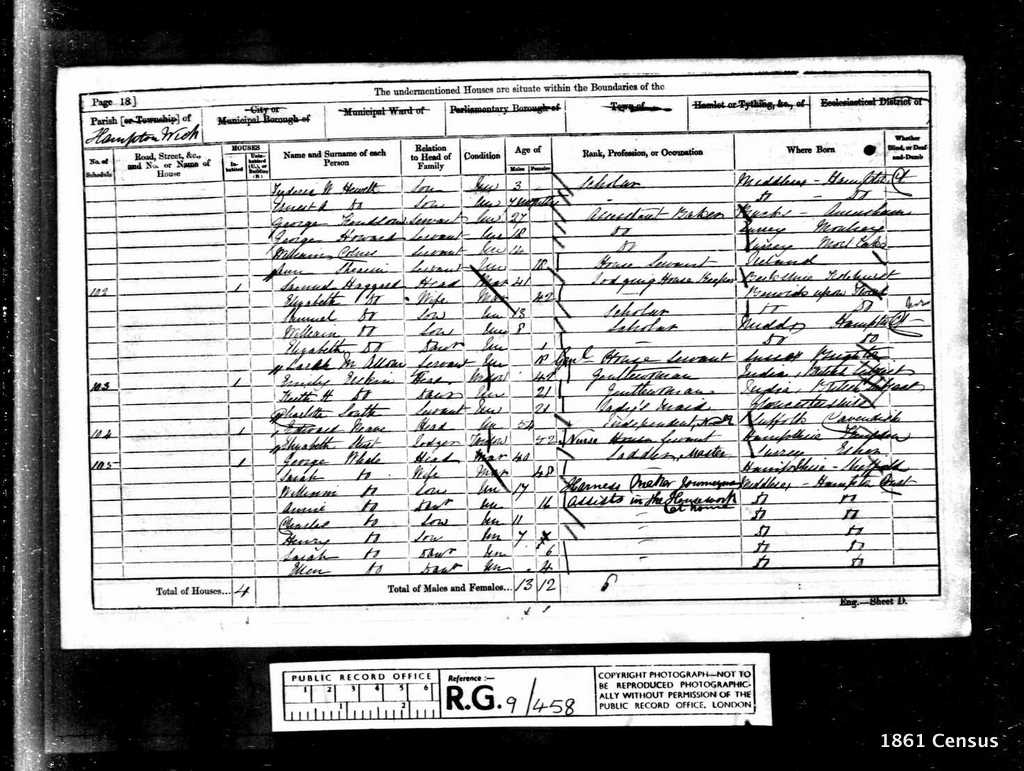 The undermentioned Houses are situate within the Boundaries of the
Page 18]
Parish [or Township] of
City or Municipal Borough of
Municipal Ward of
Parliamentary Borough of
Town of
Hamlet or Tything, &c., of
Ecclesiastical District of
Hampton Wick
No. of Schedule
Road, Street, &c., and No. or Name of House
HOUSES
Inhabited
Uninhabited (U.), or Building (B.)
Name and Surname of each Person
Relation to Head of Family
Condition
Age of
Males
Females
Rank, Profession, or Occupation
Where Born
Whether Blind, or Deaf-and-Dumb
Frederick W Hewett Son Un 3 Scholar Middlesex - Hampton Ct
Do Son Un 7 months Do Do
George Servant Un 27 Assistant Baker Bucks - Amersham
George Howard Servant Un 18 Do Surrey
William Servant Un 14 Do Surrey Mort Lake
Servant Un 18 House Servant Ireland
102 1 Samuel Haggard Head Mar 41 Lodging House Keeper Berkshire
Elizabeth Do Wife Mar 42 Berwick upon Tweed
Samuel Do Son Un 13 Scholar Do Do
William Do Son Un 8 Scholar Middx Hampton Ct
Elizabeth Do Daur Un 1 Do Do
Sarah Servant Un 18 Genl House Servant Sussex Brighton
103 1 Erskine Head Widow Gentlewoman India, British Subject
H Do Daur 21 Gentlewoman India, British Subject
Charlotte South Servant Un 21 Lady's Maid Gloucestershire
104 1 Edward Head Un 54 Independent Suffolk Cavendish
Elizabeth Lodger Widow 52 Nurse House Servant Hampshire
105 1 George Head Mar 40 Saddler Master Surrey Esher
Sarah Do Wife Mar 48 Hampshire
William Do Son Un 17 Harness Maker Journeyman Middlesex - Hampton Court
Annie Do Daur Un 16 Assists in the Housework at home Do Do
Charles Do Son Un 11 Do Do
Henry Do Son Un 7 Do Do
Sarah Do Daur Un 6 Do Do
Ellen Do Daur Un 4 Do Do
Total of Houses... 4
Total of Males and Females... 13 12
6
Eng.—Sheet D.
PUBLIC RECORD OFFICE
1 2 3 4 5 6
1 2
Reference :—
R.G. 9/458
COPYRIGHT PHOTOGRAPH—NOT TO
BE REPRODUCED PHOTOGRAPHIC-
ALLY WITHOUT PERMISSION OF THE
PUBLIC RECORD OFFICE, LONDON
1861 Census